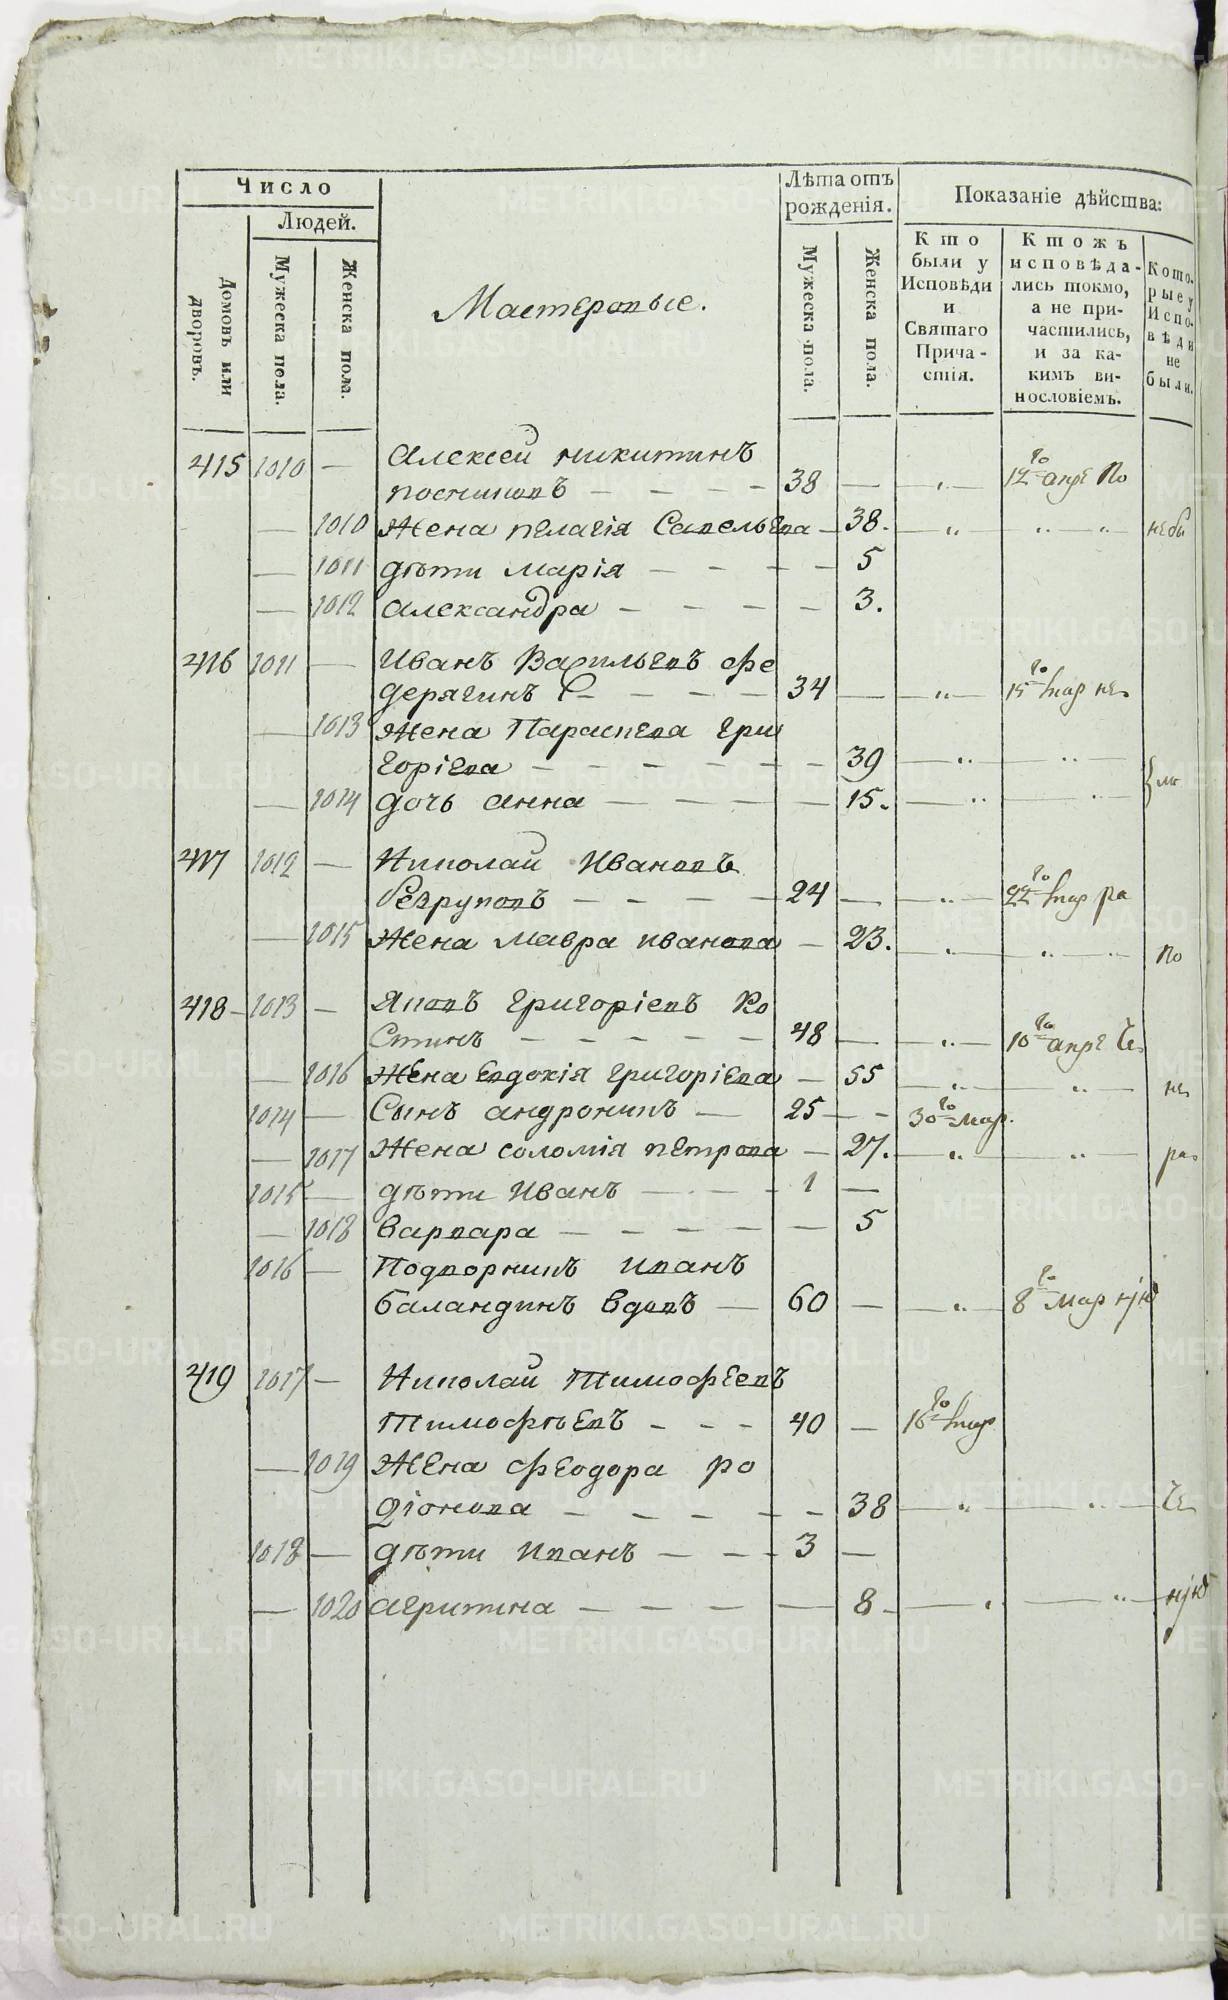 Число
Людей.
Домовъ или дворовъ.
Мужеска пола.
Женска пола.
Мастеровые.
Лѣта отъ рожденія.
Мужеска пола.
Женска пола.
Показаніе дѣйства:
Кто были у Исповѣди и Святаго Причастія.
Ктожъ исповѣдались токмо, а не причастились, и за какимъ винословіемъ.
Которые у Исповѣди не были.
415 1010 — Алексей никитинъ
— — — — 38 — „ 12го апре по
— 1010 Жена пелагія Савельева — 38. — „ — „ — „ — небы
— 1011 дѣти марія — — — — — 5
— 1012 александра — — — — — 3.
416 1011 — Иванъ Васильевъ фе
дерягинъ — — — — 34 — „ — 15го мар не
— 1013 Жена Параскева гри
горіева — — — — — — 39 — „ — „
— 1014 дочь анна — — — — 15. — „ — „
417 1012 — Николай Ивановъ
— — — — 24 — — „ — 22го мар ра
— 1015 Жена мавра иванова — 23. — „ — „ — „ — по
418 — 1013 — Яковъ григоріевъ Ко
стинъ — — — — — 48 — — „ — 10го апре Че
— 1016 Жена Евдокія григоріева — 55 — „ — „ — не
1014 — Сынъ андроникъ — 25 — — 30го мар.
— 1017 Жена соломія петрова — 27. — „ — „ — ра
1015 — дѣти Иванъ — — — 1 —
— 1018 варвара — — — — — — 5
1016 — Подворникъ Иванъ
баландинъ вдовъ — 60 — — „ — 8го мар
419 1017 — Николай Тимофеевъ
Тимофѣевъ — — — 40 — 16го мар
— 1019 Жена феодора ро
діонова — — — — — 38 — „ — „ — Че
1018 — дѣти Иванъ — — — 3 —
— 1020 агрипина — — — — — 8 — „ — „ —
METRIKI.GASO-URAL.RU